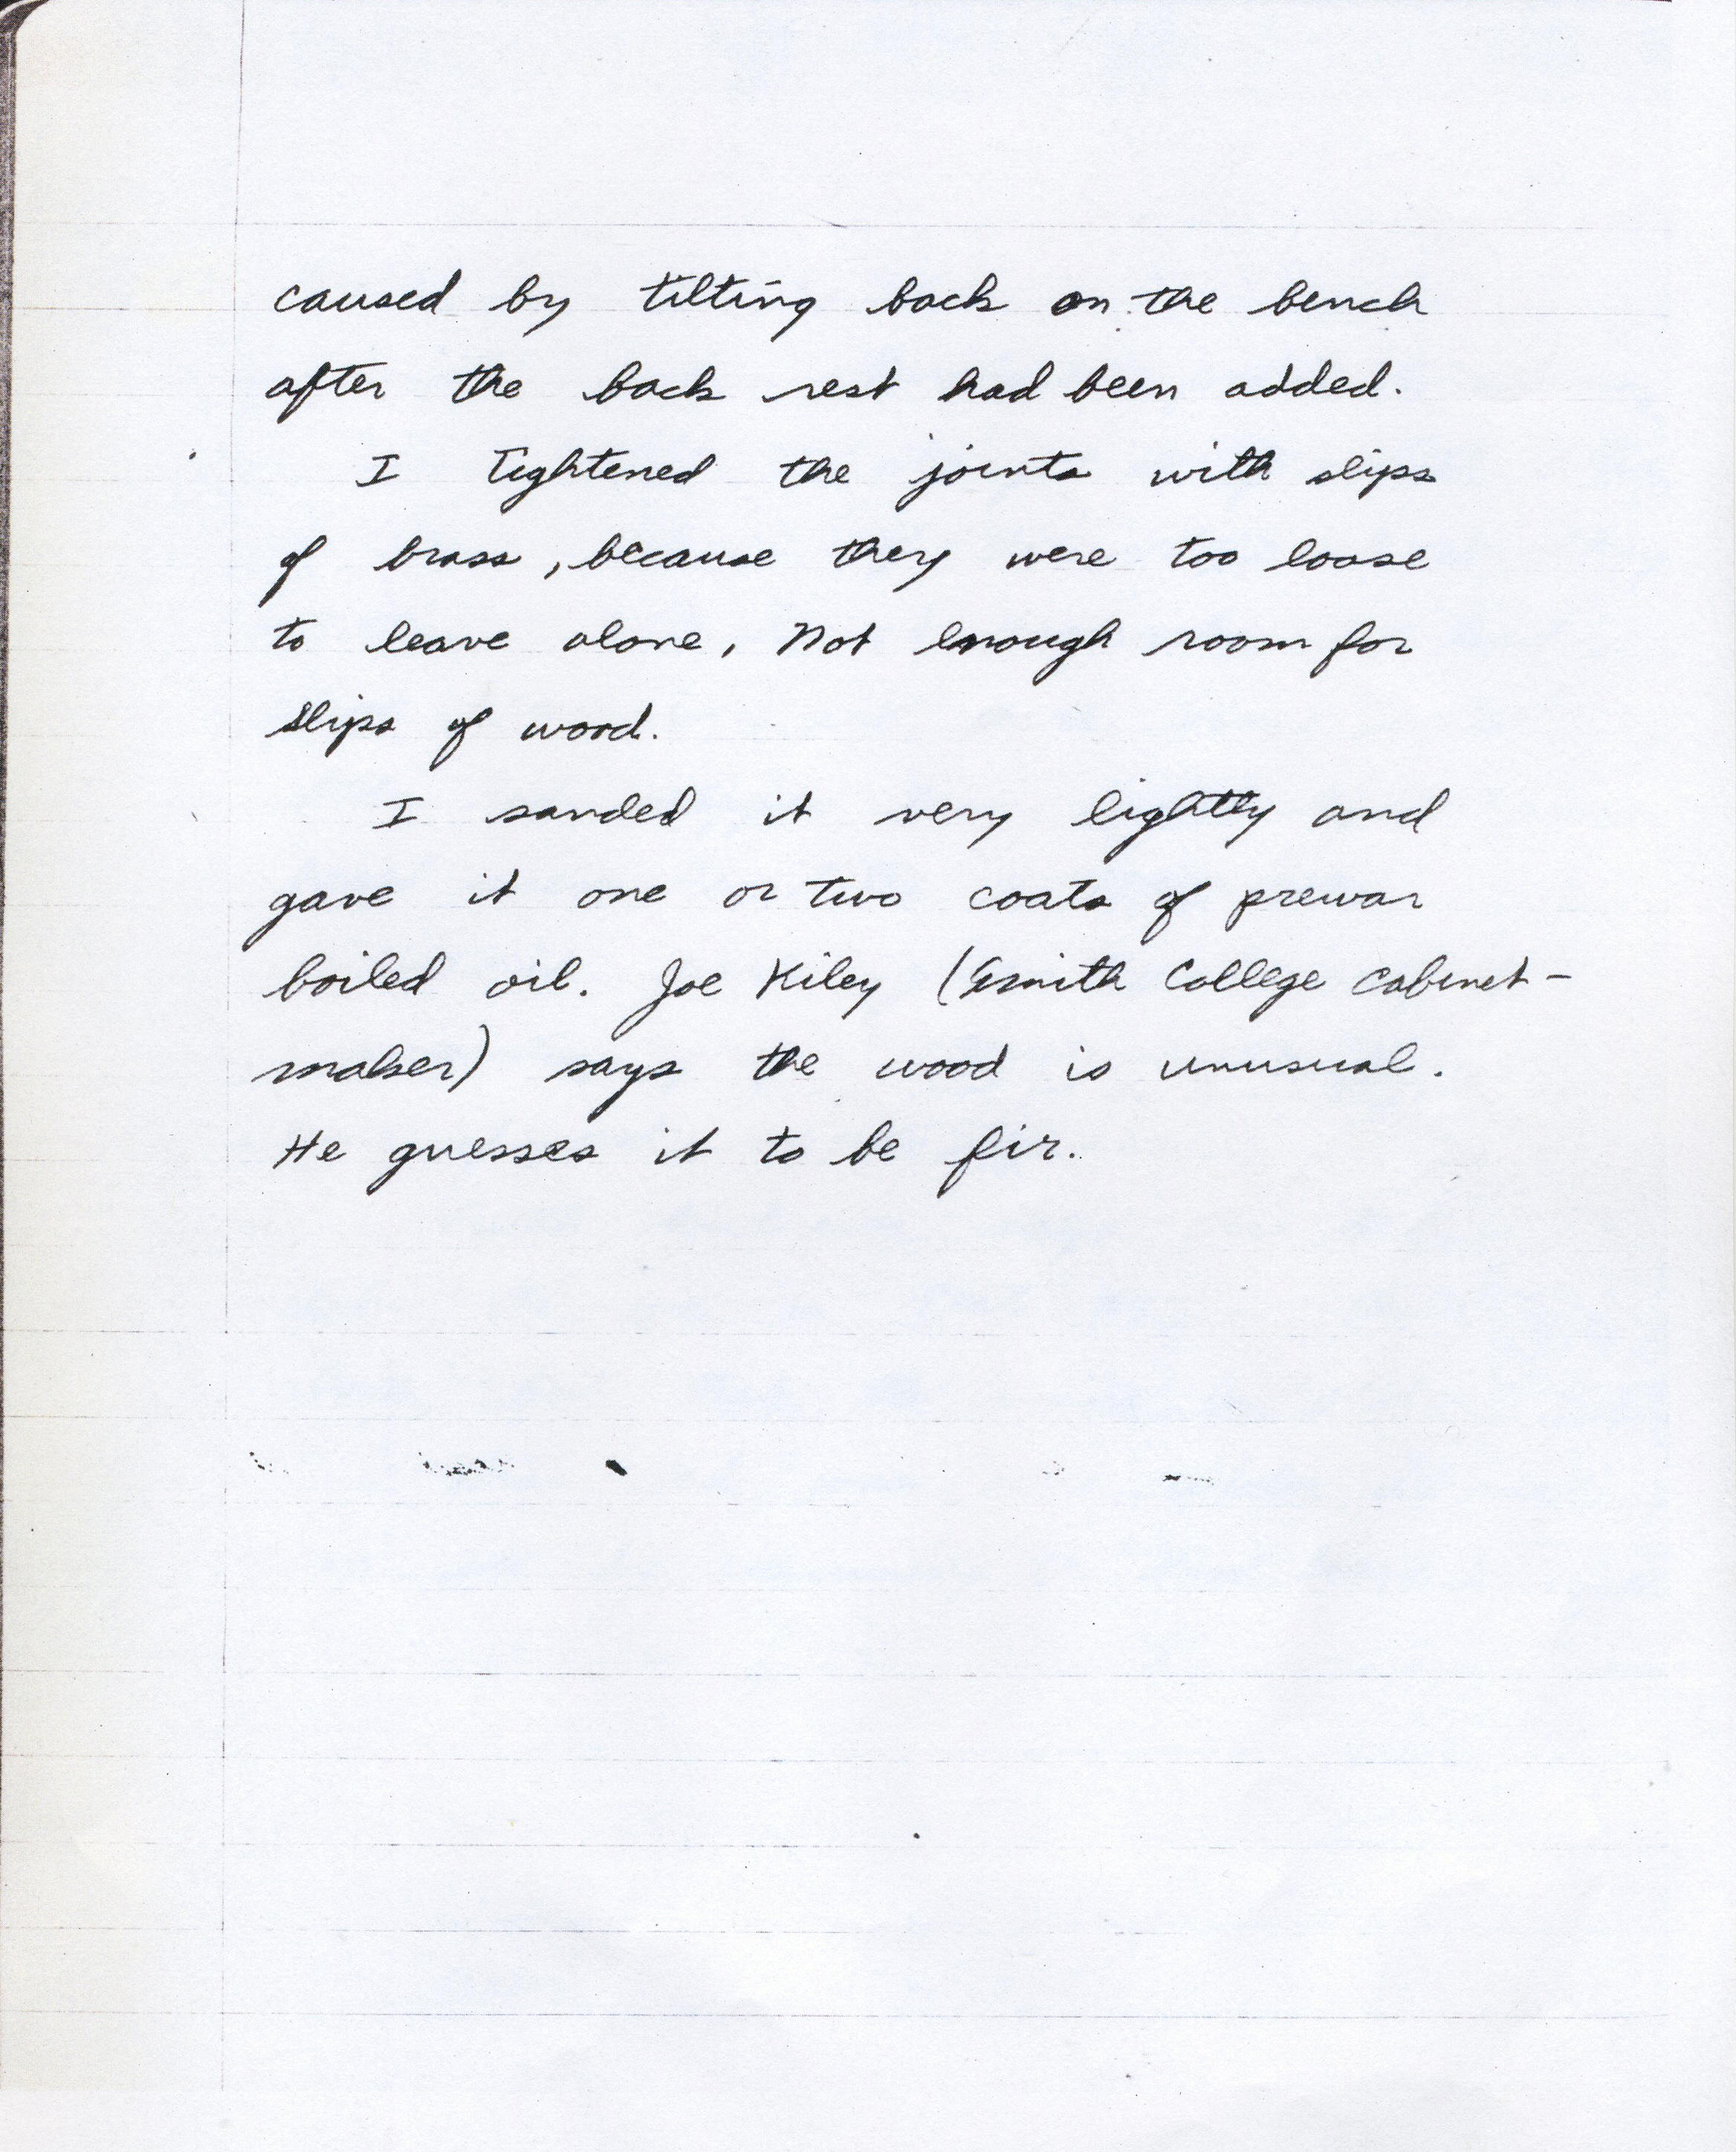 caused by tilting back on the bench
after the back rest had been added.
I tightened the joints with slips
of brass, because they were too loose
to leave alone, Not enough room for
slips of wood.
I sanded it very lightly and
gave it one or two coats of prewar
boiled oil. Joe Kiley (Smith College Cabinet-
maker) says the wood is unusual.
He guesses it to be fir.